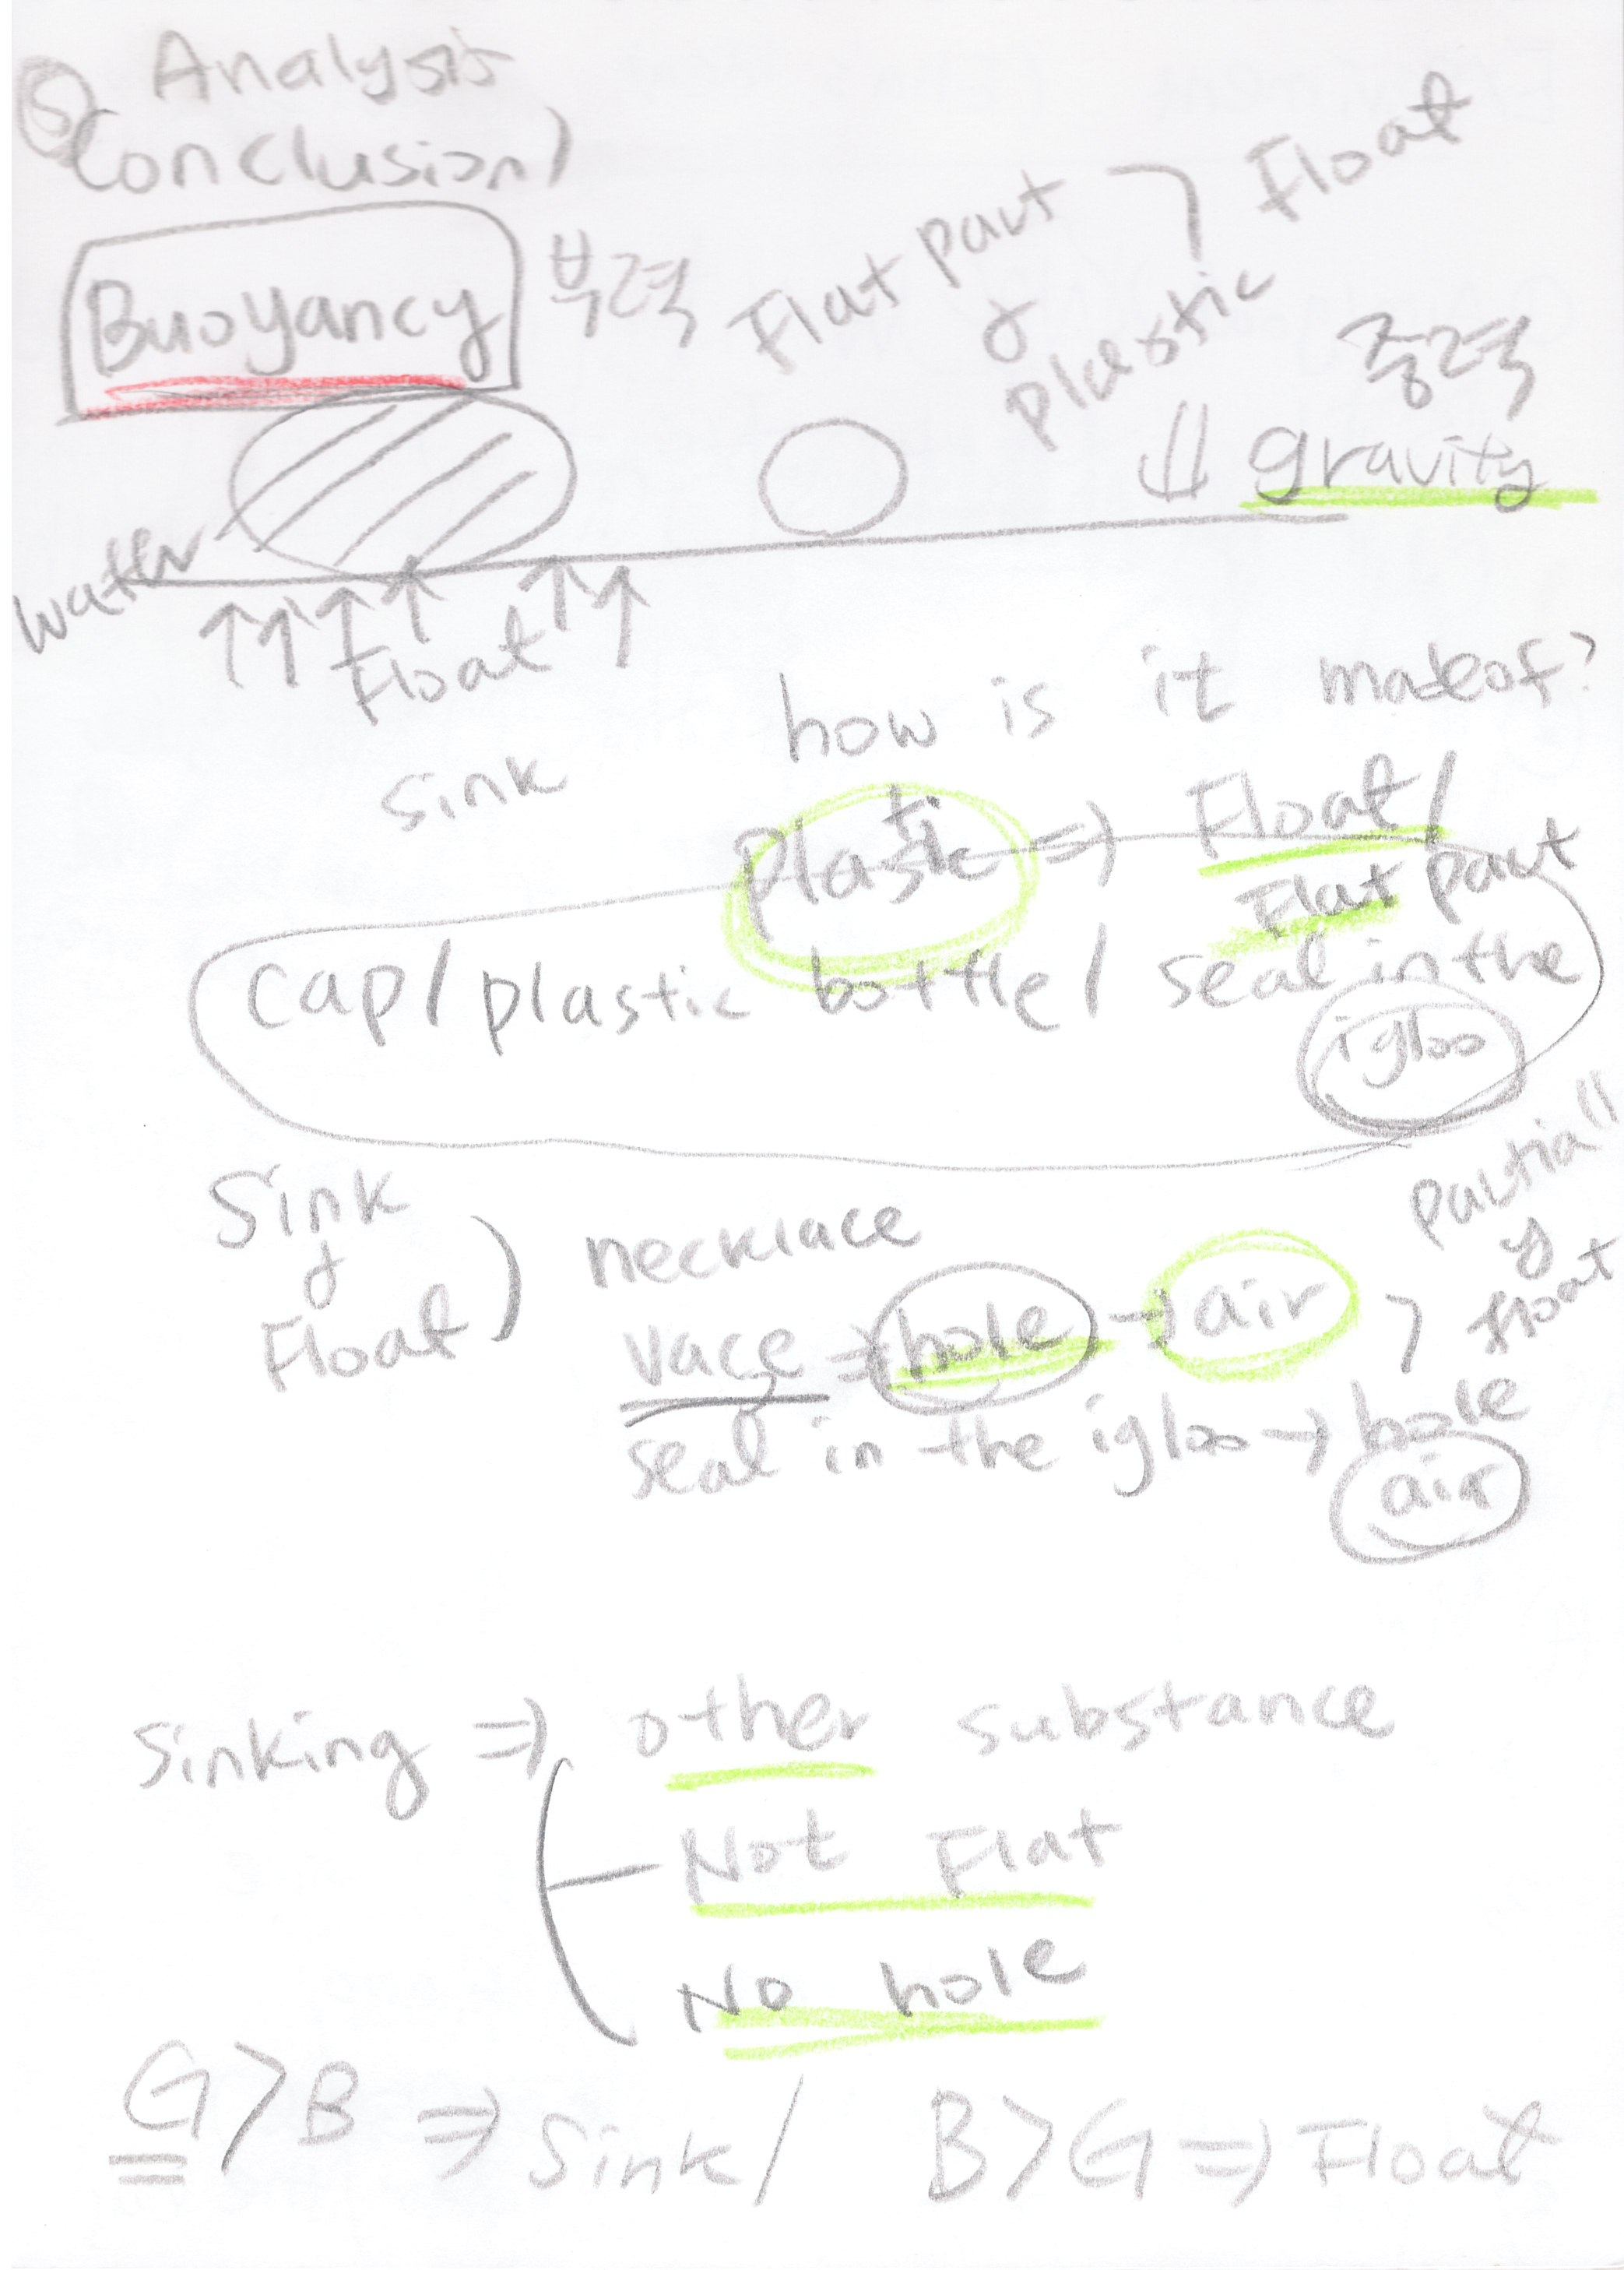 ⑤ Analysis
Conclusion)
Buoyancy 부력
Flat part
&
plastic
> Float
중력
⇓ gravity
water
↑↑↑↑ ↑↑
Float
how is it makeof?
Sink
plastic ⇒ Float /
Flat part
cap / plastic bottle / seal in the
igloo
Sink
&
Float ) necklace
vace ⇒ hole → air
seal in the igloo → hole
air
> partiall
y
float
Sinking ⇒ other substance
Not Flat
No hole
G > B ⇒ Sink / B > G ⇒ Float